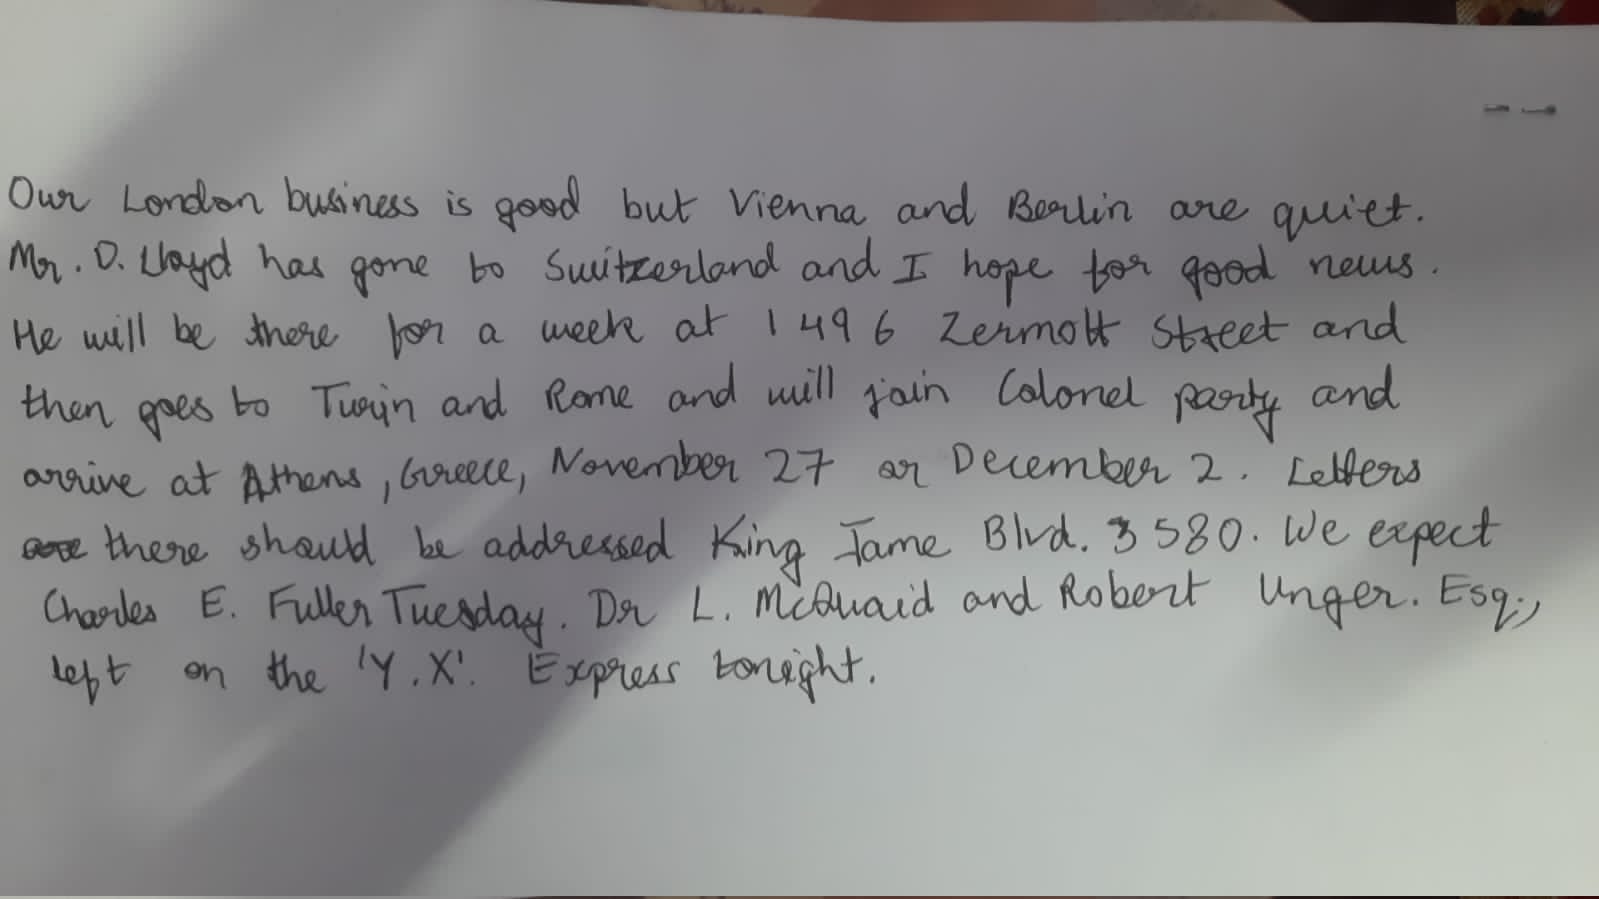 Our London business is good but Vienna and Berlin are quiet.
Mr. D. Lloyd has gone to Switzerland and I hope for good news.
He will be there for a week at 1496 Zermott Street and
then goes to Turin and Rome and will join Colonel party and
arrive at Athens, Greece, November 27 or December 2. Letters
there should be addressed King Jame Blvd. 3580. We expect
Charles E. Fuller Tuesday. Dr L. McQuaid and Robert Unger. Esq.,
left on the 'Y.X'. Express tonight.